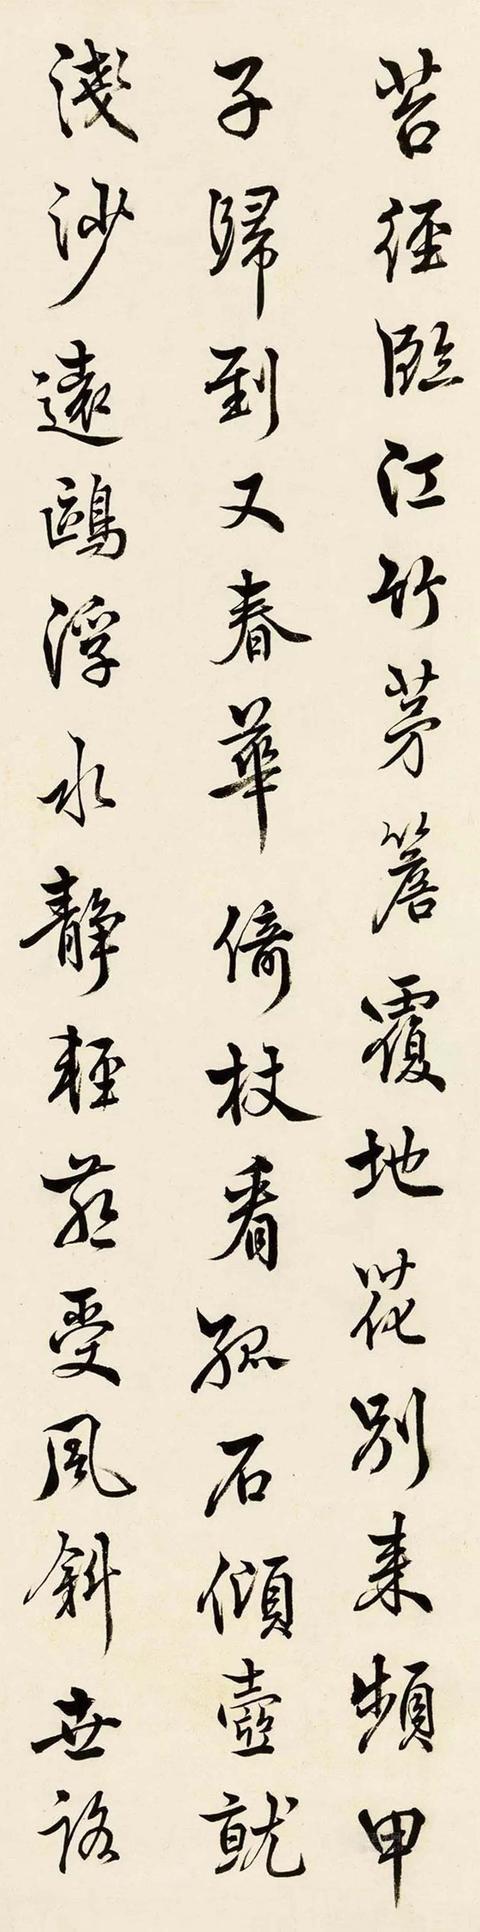 苔徑臨江竹茅簷覆地花別來頻甲
子歸到又春華倚杖看孤石傾壺就
淺沙遠鷗浮水靜輕燕受風斜世路